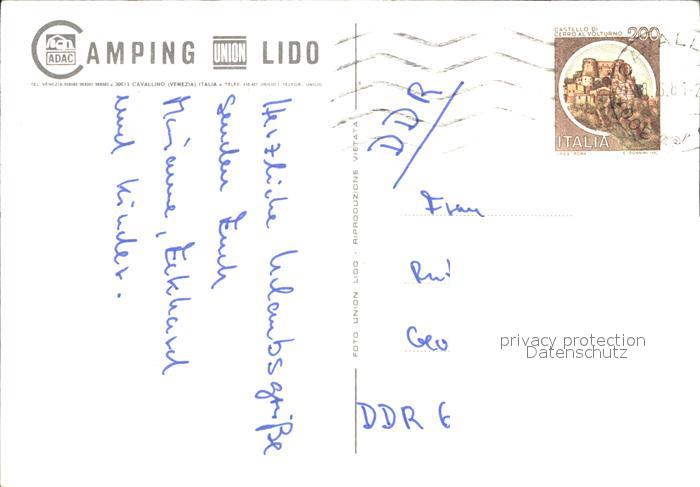 CAMPING UNION LIDO
ADAC
30013 CAVALLINO (VENEZIA) ITALIA
Herzliche Urlaubsgrüße
senden Euch
Marianne, Eckhard
und Kinder.
FOTO UNION LIDO - RIPRODUZIONE VIETATA
CASTELLO DI
CERRO AL VOLTURNO 200
ITALIA
DDR
Frau
Geo
DDR 6
privacy protection
Datenschutz